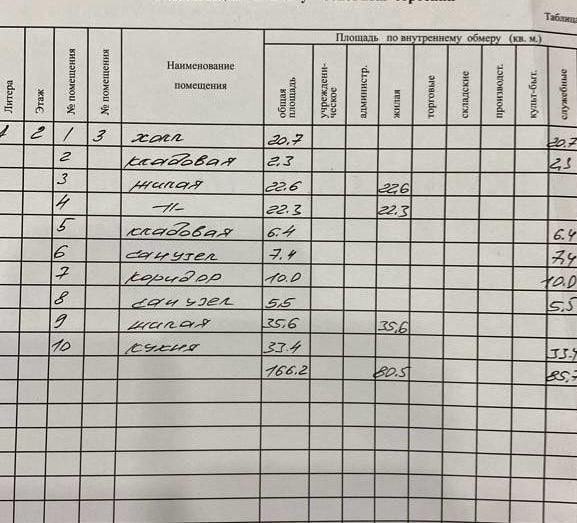 Таблица
Литера Этаж № помещения № помещения Наименование помещения Площадь по внутреннему обмеру (кв. м.)
общая площадь учреждени-ческое администр. жилая торговые складские производст. культ-быт. служебные
2 1 3 холл 20.7 20.7
2 кладовая 2,3 2,3
3 жилая 22.6 22,6
4 -//- 22.3 22.3
5 кладовая 6.4 6.4
6 санузел 7.4 7,4
7 коридор 10.0 10.0
8 санузел 5,5 5,5
9 жилая 35,6 35,6
10 кухня 33.4 33.4
166.2 80.5 85,7